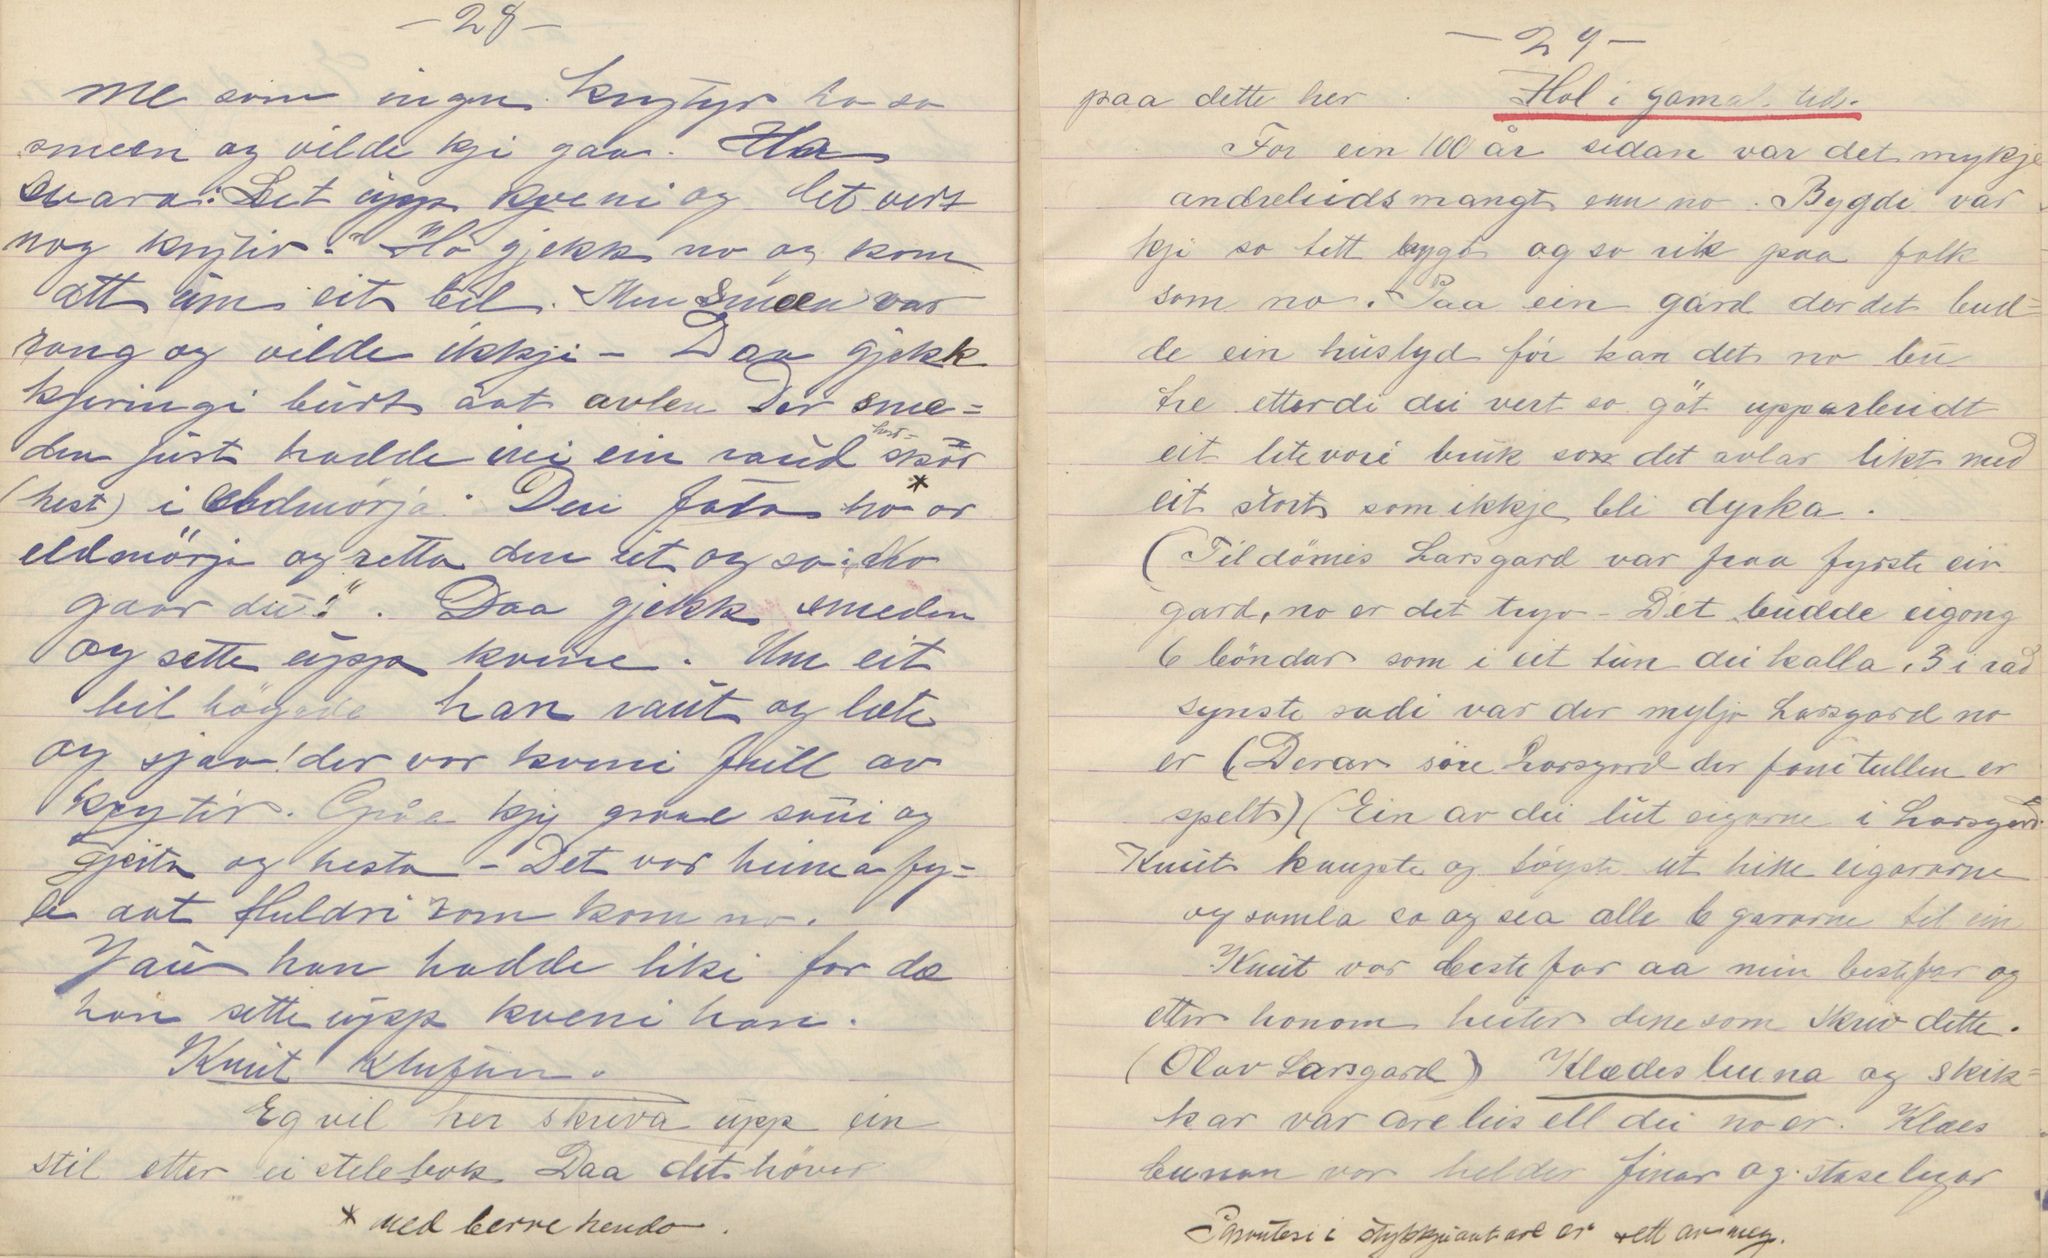 - 28 -
me som ingen krytyr ha sa
smeen og vilde kji gaa. Ha
svara: Set upp kveni og det vert
nog krytir." Ho gjekk no og kom
att um eit bil. Men smeen var
rang og vilde ikkji - Daa gjekk
kjeringi burt aat avlen Der sme=
den just hadde ini ein raud hest= skor
(hest) i eldmörja. Den fata ho * or
eldmörja og retta den ut og sa: No
gaar du!". Daa gjekk smeden
og sette upp kvene. Um eit
bil högde han raut og læte
og sjaa! der var kveni full av
krytir. Graa kjy graae saui og
gjeita og hesta - Det var heima fy=
le aat Huldri som kom no.
Jau han hadde liki for da
han sette upp kveni han.
Knut Lufjün.
Eg vil her skriva upp ein
stil etter ei stilebok Daa det höver
* med berre hendo.
- 29 -
paa dette her . Hol i gamal tid.
For ein 100 år sidan var det mykje
andreleids mangt enn no. Bygdi var
kji so tett bygd og so rik paa folk
som no. Paa ein gård der det bud=
de ein huslyd för kan det no bu
tre etterdi dei vert so göt upparbeidt
eit litevori bruk som det avlar likt med
eit stort som ikkje bli dyrka.
(Til dömis Larsgard var paa fyrste ein
gard, no er det tryo - Det budde eigong
6 böndar som i eit tun dei kalla, 3 i rad
synste radi var der mylja Larsgard no
er (Derav söre Larsgard der fanitullen er
spelt) (Ein av dei lut eigarne i Larsgard
Knut kaupte og löyste ut hine eigararne
og samla so og sea alle 6 gararne til ein
Knut var bestefar aa min bestefar og
etter honom heiter denesom skriv dette.
(Olav Larsgard) Klædesbuna og skik=
kar var areleis ell dei no er. Klæes
bunan var helder finar og staselegar
Parantesi i stykkji aat are er sett av meg.